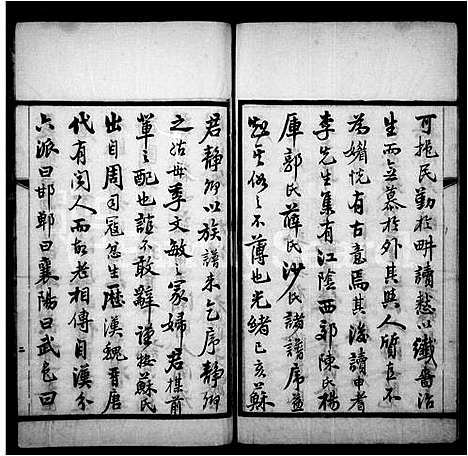 可挹民勤於畊讀愁以纖嗇治
生而無慕於外其與人質直不
為媚悅有古意焉其後讀申耆
李先生集有江陰西郭陳氏楊
庫郭氏薛氏沙氏諸譜序益
知其俗之不薄也光緒己亥蘇
君靜卿以族譜來乞序靜卿
之祖母季文敏之冢婦君楳前
輩之配也誼不敢辭謹按蘇氏
出自周司寇忿生歷漢魏晉唐
代有聞人而故老相傳自漢分
六派曰邯鄲曰襄陽曰武邑曰
二